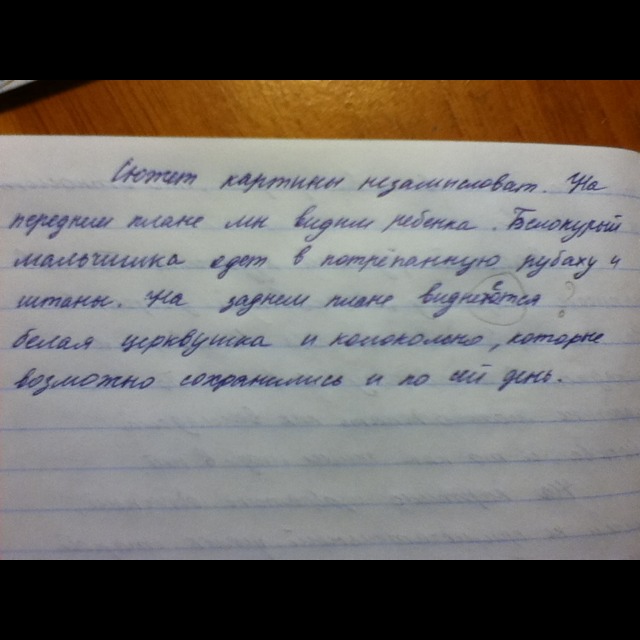 Сюжет картины незамысловат. На
переднем плане мы видим ребенка. Белокурый
мальчишка одет в потрёпанную рубаху и
штаны. На заднем плане виднеются ?
белая церквушка и колокольня, которые
возможно сохранились и по сей день.